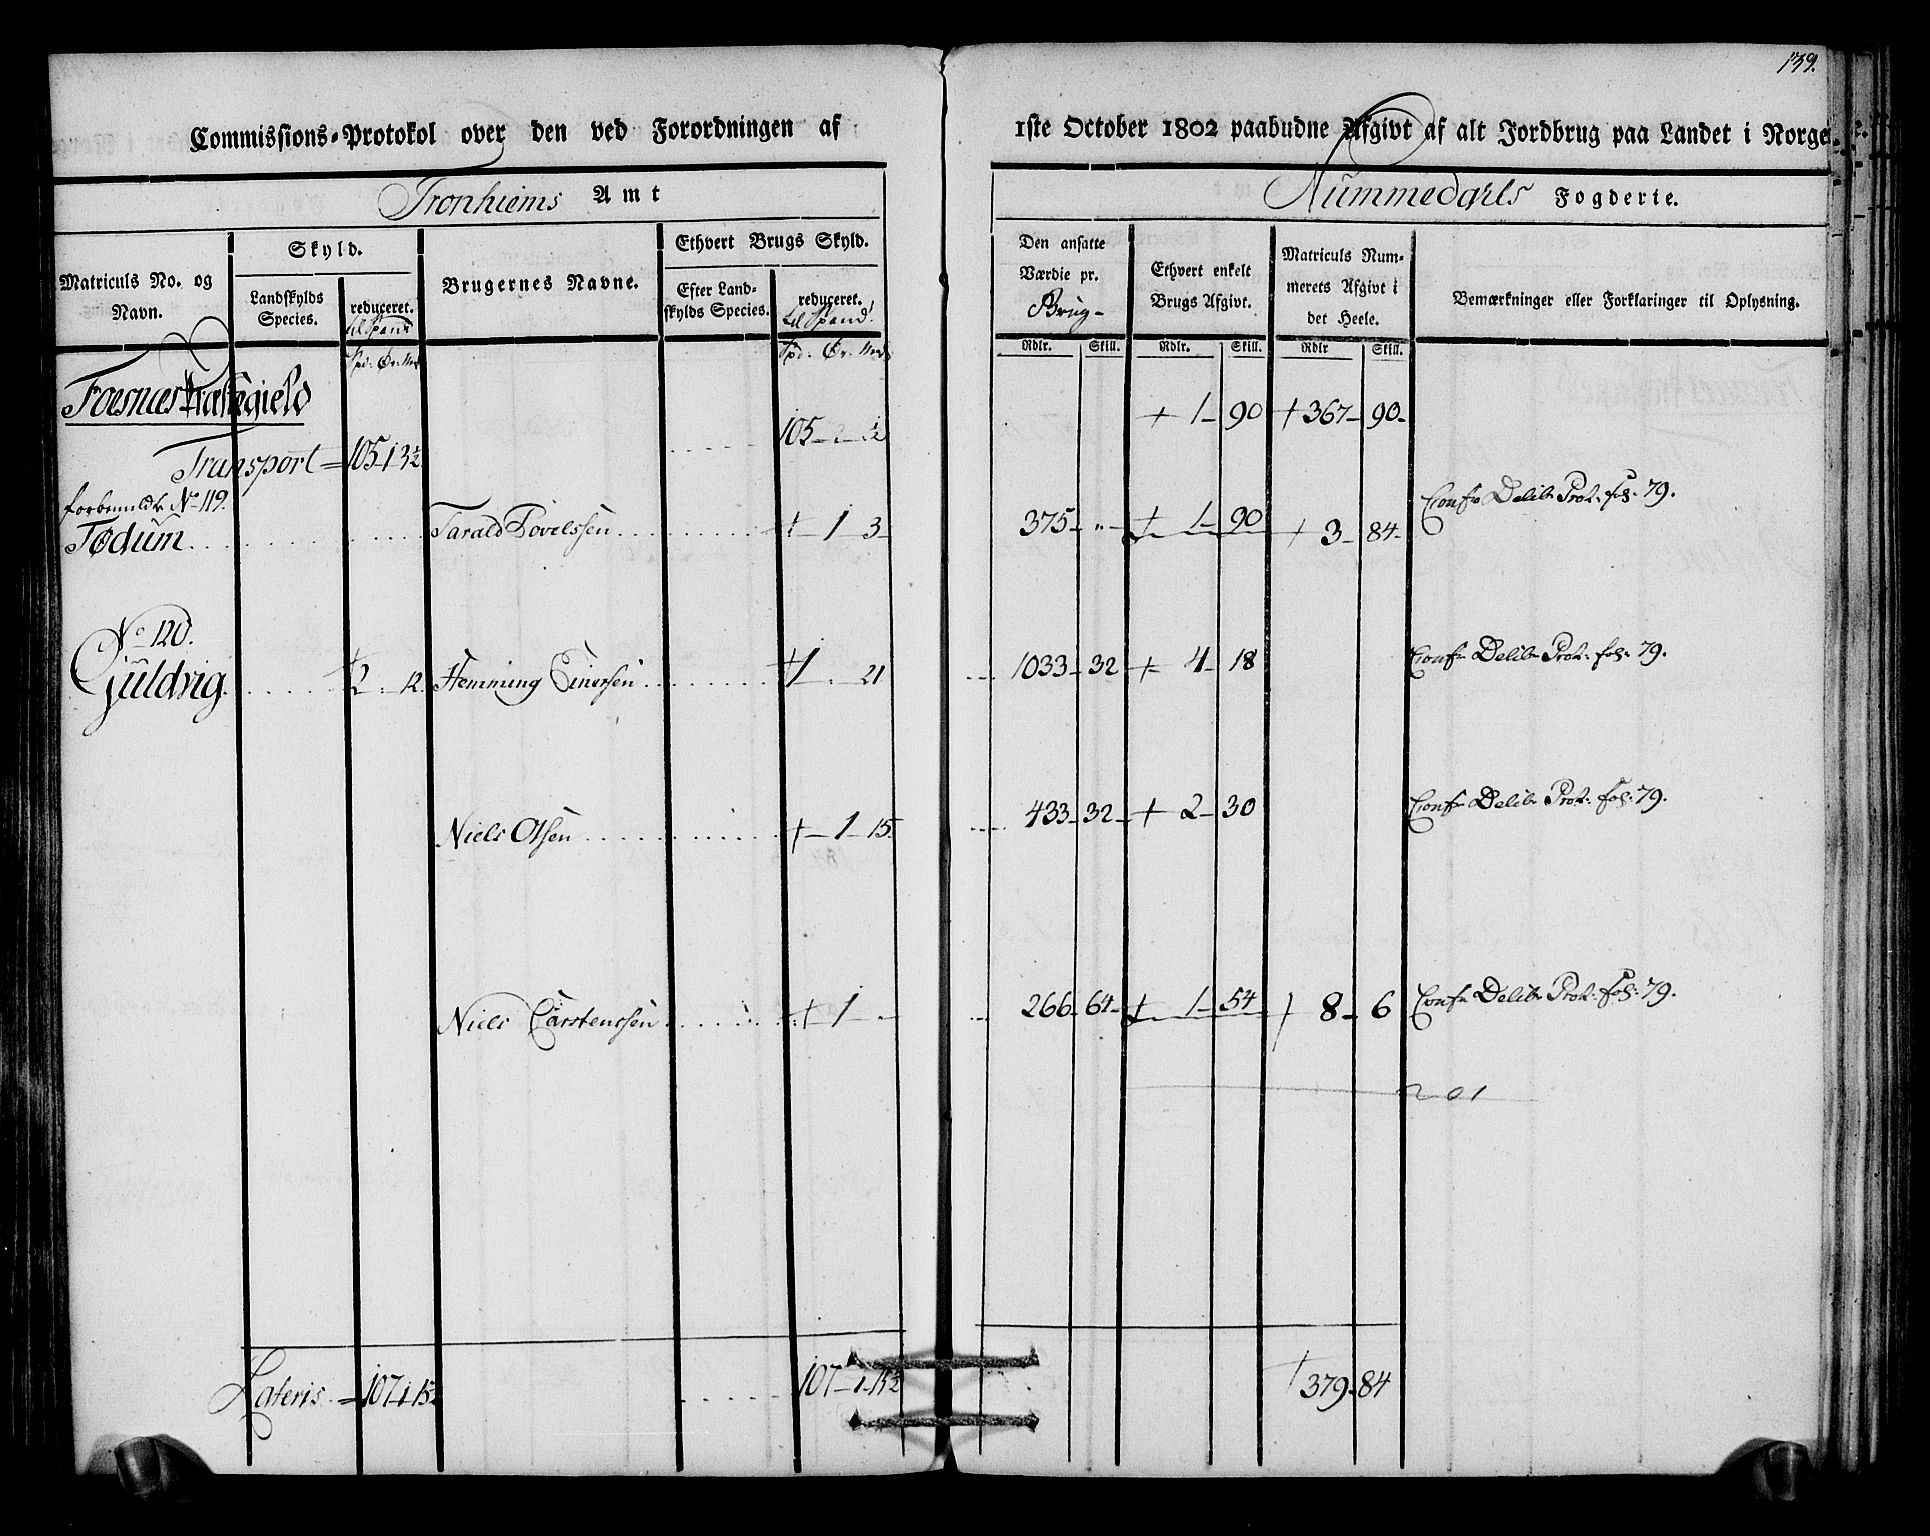 139.
Commissions-Protokol over den ved Forordningen af 1ste October 1802 paabudne Afgivt af alt Jordbrug paa Landet i Norge.
Tronhiems Amt
Nummedahls Fogderie.
Matriculs No. og Navn.
Skyld.
Landskylds Species.
reduceret. til Spand
Brugernes Navne.
Ethvert Brugs Skyld.
Efter Landskylds Species.
reduceret. til Spand.
Den ansatte Værdie pr. Brug-
Ethvert enkelt Brugs Afgivt.
Matriculs Nummerets Afgivt i det Heele.
Bemærkninger eller Forklaringer til Oplysning.
Rdlr. Skill. Rdlr. Skill. Rdlr Skill.
Foesnæs Præstegield
+ 1 - 90 + 367 - 90 -
Transport = 105 - 1 3½
forbemeldte No 119.
Tødum Tarald Povelssen + - 1 - 3 - 375 - " - + 1 - 90 + 3 - 84 - Confr Delibr Prot: fol: 79.
No 120.
Guldvig + 2 - 12. Hemming Einersen + 1 - 21 1033 - 32 + 4 - 18 Confr Delibr Prot: fol: 79.
Niels Olsen + - 1 - 15. 433 - 32 - + 2 - 30 Confr Delibr Prot: fol: 79.
Niels Carstenssen + 1 - - 266 - 64 - + 1 - 54 + 8 - 6 Confr Delibr Prot: fol: 79.
201
Lateris = 107 - 1 - 15½ 107 - 1 - 15½ + 379 - 84